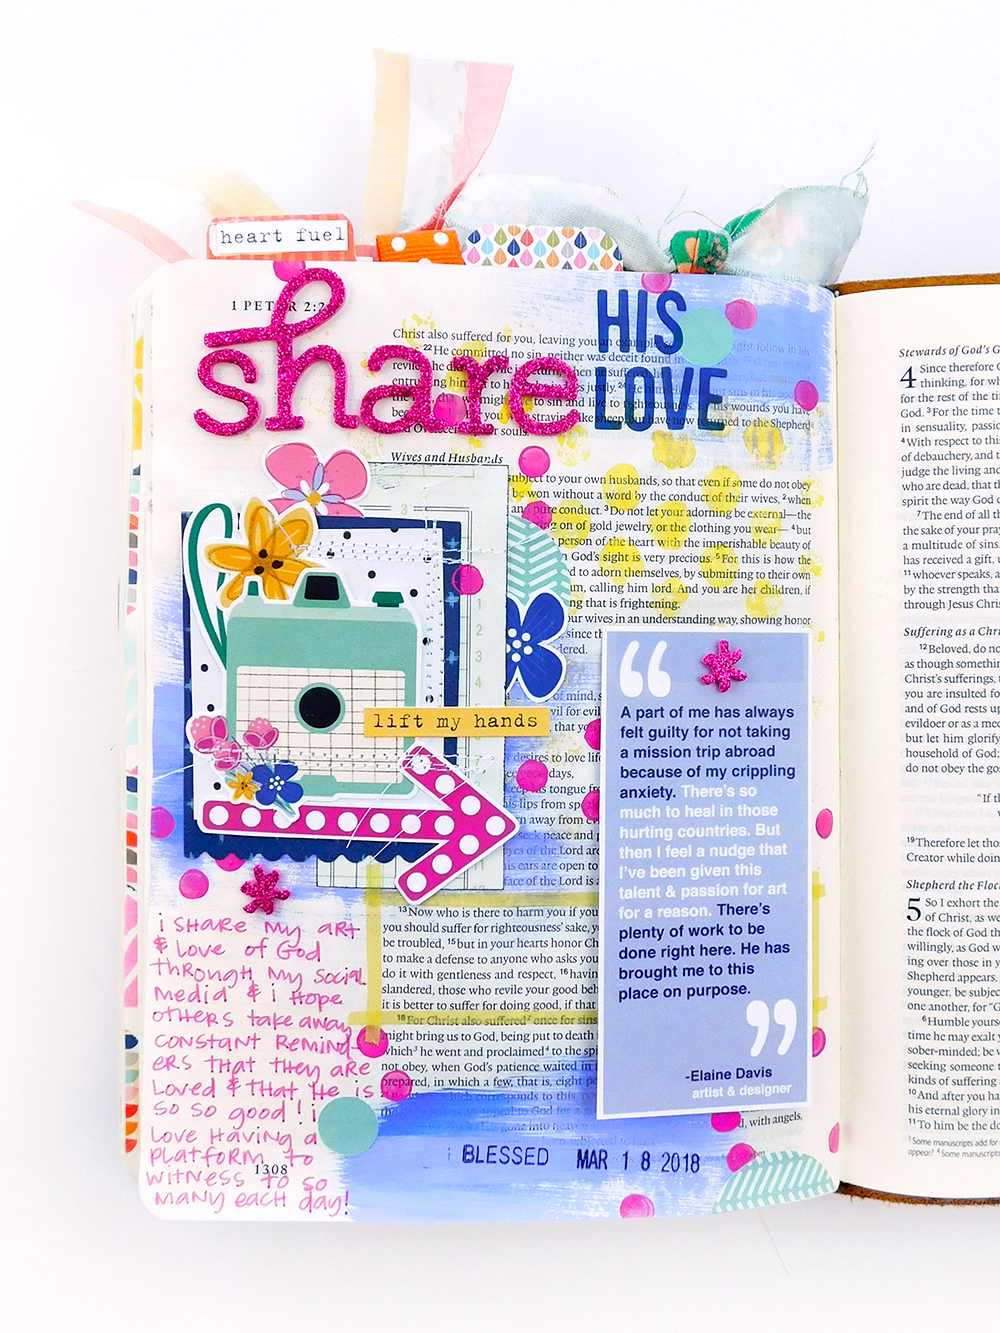 heart fuel
1 PETER 2:2
share
HIS
LOVE
Christ also suffered for you, leaving you an example
22 He committed no sin, neither was deceit found in
Wives and Husbands
subject to your own husbands, so that even if some do not obey
be won without a word by the conduct of their wives, 2 when
pure conduct. 3 Do not let your adorning be external—the
on of gold jewelry, or the clothing you wear— 4 but
person of the heart with the imperishable beauty of
n God's sight is very precious. 5 For this is how the
d to adorn themselves, by submitting to their own
m, calling him lord. And you are her children, if
ng that is frightening.
our wives in an understanding way, showing honor
since th
dered.
of mind, s
vil for evil
lift my hands
desires to love life
days,
tongue fr
lips from
n away from ev
seek peace and p
eyes of the Lord are
ears are open to
face of the Lord is a
13 Now who is there to harm you if you
you should suffer for righteousness' sake, y
be troubled, 15 but in your hearts honor C
to make a defense to anyone who asks you
do it with gentleness and respect, 16 havin
slandered, those who revile your good beh
it is better to suffer for doing good, if that
18 For Christ also suffered 2 once for sins
might bring us to God, being put to death
which 3 he went and proclaimed 4 to the spi
not obey, when God's patience waited in
prepared, in which a few, that is, eight pe
d, with angels,
“
A part of me has always
felt guilty for not taking
a mission trip abroad
because of my crippling
anxiety. There's so
much to heal in those
hurting countries. But
then I feel a nudge that
I've been given this
talent & passion for art
for a reason. There's
plenty of work to be
done right here. He has
brought me to this
place on purpose.
”
-Elaine Davis
artist & designer
i share my art
& love of God
through my social
media & i hope
others take away
constant remind-
ers that they are
loved & that He is
so so good! i
love having a
platform to
witness to so
many each day!
1308
BLESSED MAR 18 2018
Stewards of God's G
4 Since therefore C
thinking, for wh
for the rest of the ti
God. 3 For the time t
in sensuality, passio
4 With respect to this
of debauchery, and t
judge the living and
who are dead, that t
spirit the way God d
7 The end of all th
the sake of your pray
a multitude of sins.
has received a gift, u
11 whoever speaks, a
by the strength that
through Jesus Chris
Suffering as a Chri
12 Beloved, do no
as though somethin
Christ's sufferings, t
you are insulted fo
and of God rests up
evildoer or as a med
but let him glorify
household of God;
do not obey the go
"If th
19 Therefore let thos
Creator while doin
Shepherd the Floc
5 So I exhort the
of Christ, as we
the flock of God th
willingly, as God w
ing over those in y
Shepherd appears,
younger, be subjec
one another, for "G
6 Humble yourse
time he may exalt y
sober-minded; be w
seeking someone t
kinds of suffering
10 And after you ha
his eternal glory in
11 To him be the do
1 Some manuscripts add for
appear? 4 Some manuscripts